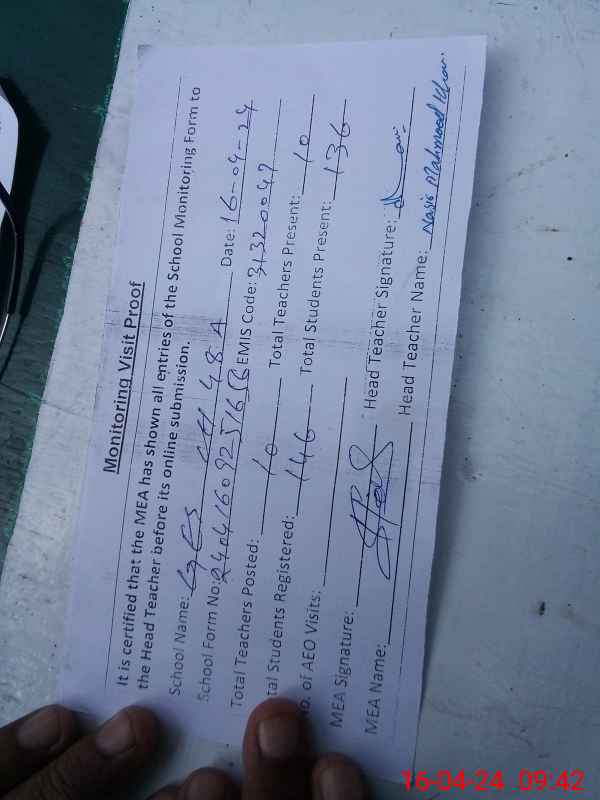 Monitoring Visit Proof
It is certified that the MEA has shown all entries of the School Monitoring Form to
the Head Teacher before its online submission.
School Name: GES 48 A Date: 16-04-24
School Form No: EMIS Code: 31320047
Total Teachers Posted: 10 Total Teachers Present: 10
tal Students Registered: 146 Total Students Present: 136
o. of AEO Visits:
MEA Signature: Head Teacher Signature:
MEA Name: Head Teacher Name: Nasir Mahmood Khan
16-04-24 09:42